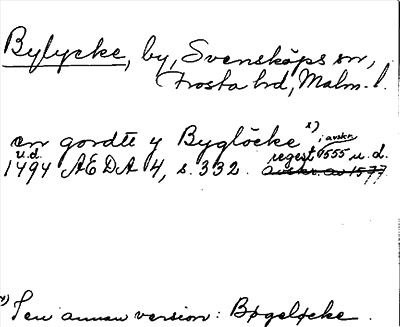 Bylycke, by, Svensköps sn,
Frosta hd, Malm. l.
en gordtt y Byglöcke x)
u.d. regest i avskr. 1555 u.d.
1494 AEDA 4, s. 332. avskr. av 1577
x) I en annan version: Bøgeløcke.